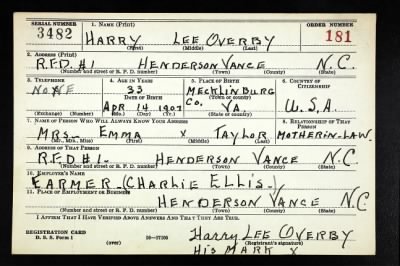 SERIAL NUMBER 1. NAME (Print) ORDER NUMBER
3482 HARRY LEE OVERBY 181
(First) (Middle) (Last)
2. ADDRESS (Print)
R.F.D. #1 HENDERSON VANCE N.C.
(Number and street or R. F. D. number) (Town) (County) (State)
3. TELEPHONE 4. AGE IN YEARS 5. PLACE OF BIRTH 6. COUNTRY OF CITIZENSHIP
NONE 33 MECKLINBURG
DATE OF BIRTH Co. VA U.S.A.
APR 14 1907
(Exchange) (Number) (Mo.) (Day) (Yr.) (Town or county) (State or country)
7. NAME OF PERSON WHO WILL ALWAYS KNOW YOUR ADDRESS 8. RELATIONSHIP OF THAT PERSON
MRS- EMMA X TAYLOR MOTHERIN-LAW.
(Mr., Mrs., Miss) (First) (Middle) (Last)
9. ADDRESS OF THAT PERSON
R.F.D #1- HENDERSON VANCE N.C.
(Number and street or R. F. D. number) (Town) (County) (State)
10. EMPLOYER'S NAME
FARMER (CHARLIE ELLIS.)
11. PLACE OF EMPLOYMENT OR BUSINESS
HENDERSON VANCE N.C.
(Number and street or R. F. D. number) (Town) (County) (State)
I AFFIRM THAT I HAVE VERIFIED ABOVE ANSWERS AND THAT THEY ARE TRUE.
REGISTRATION CARD
D. S. S. Form 1 (over) 16—17105 Harry LEE OVERBY
(Registrant's signature)
His MARK X